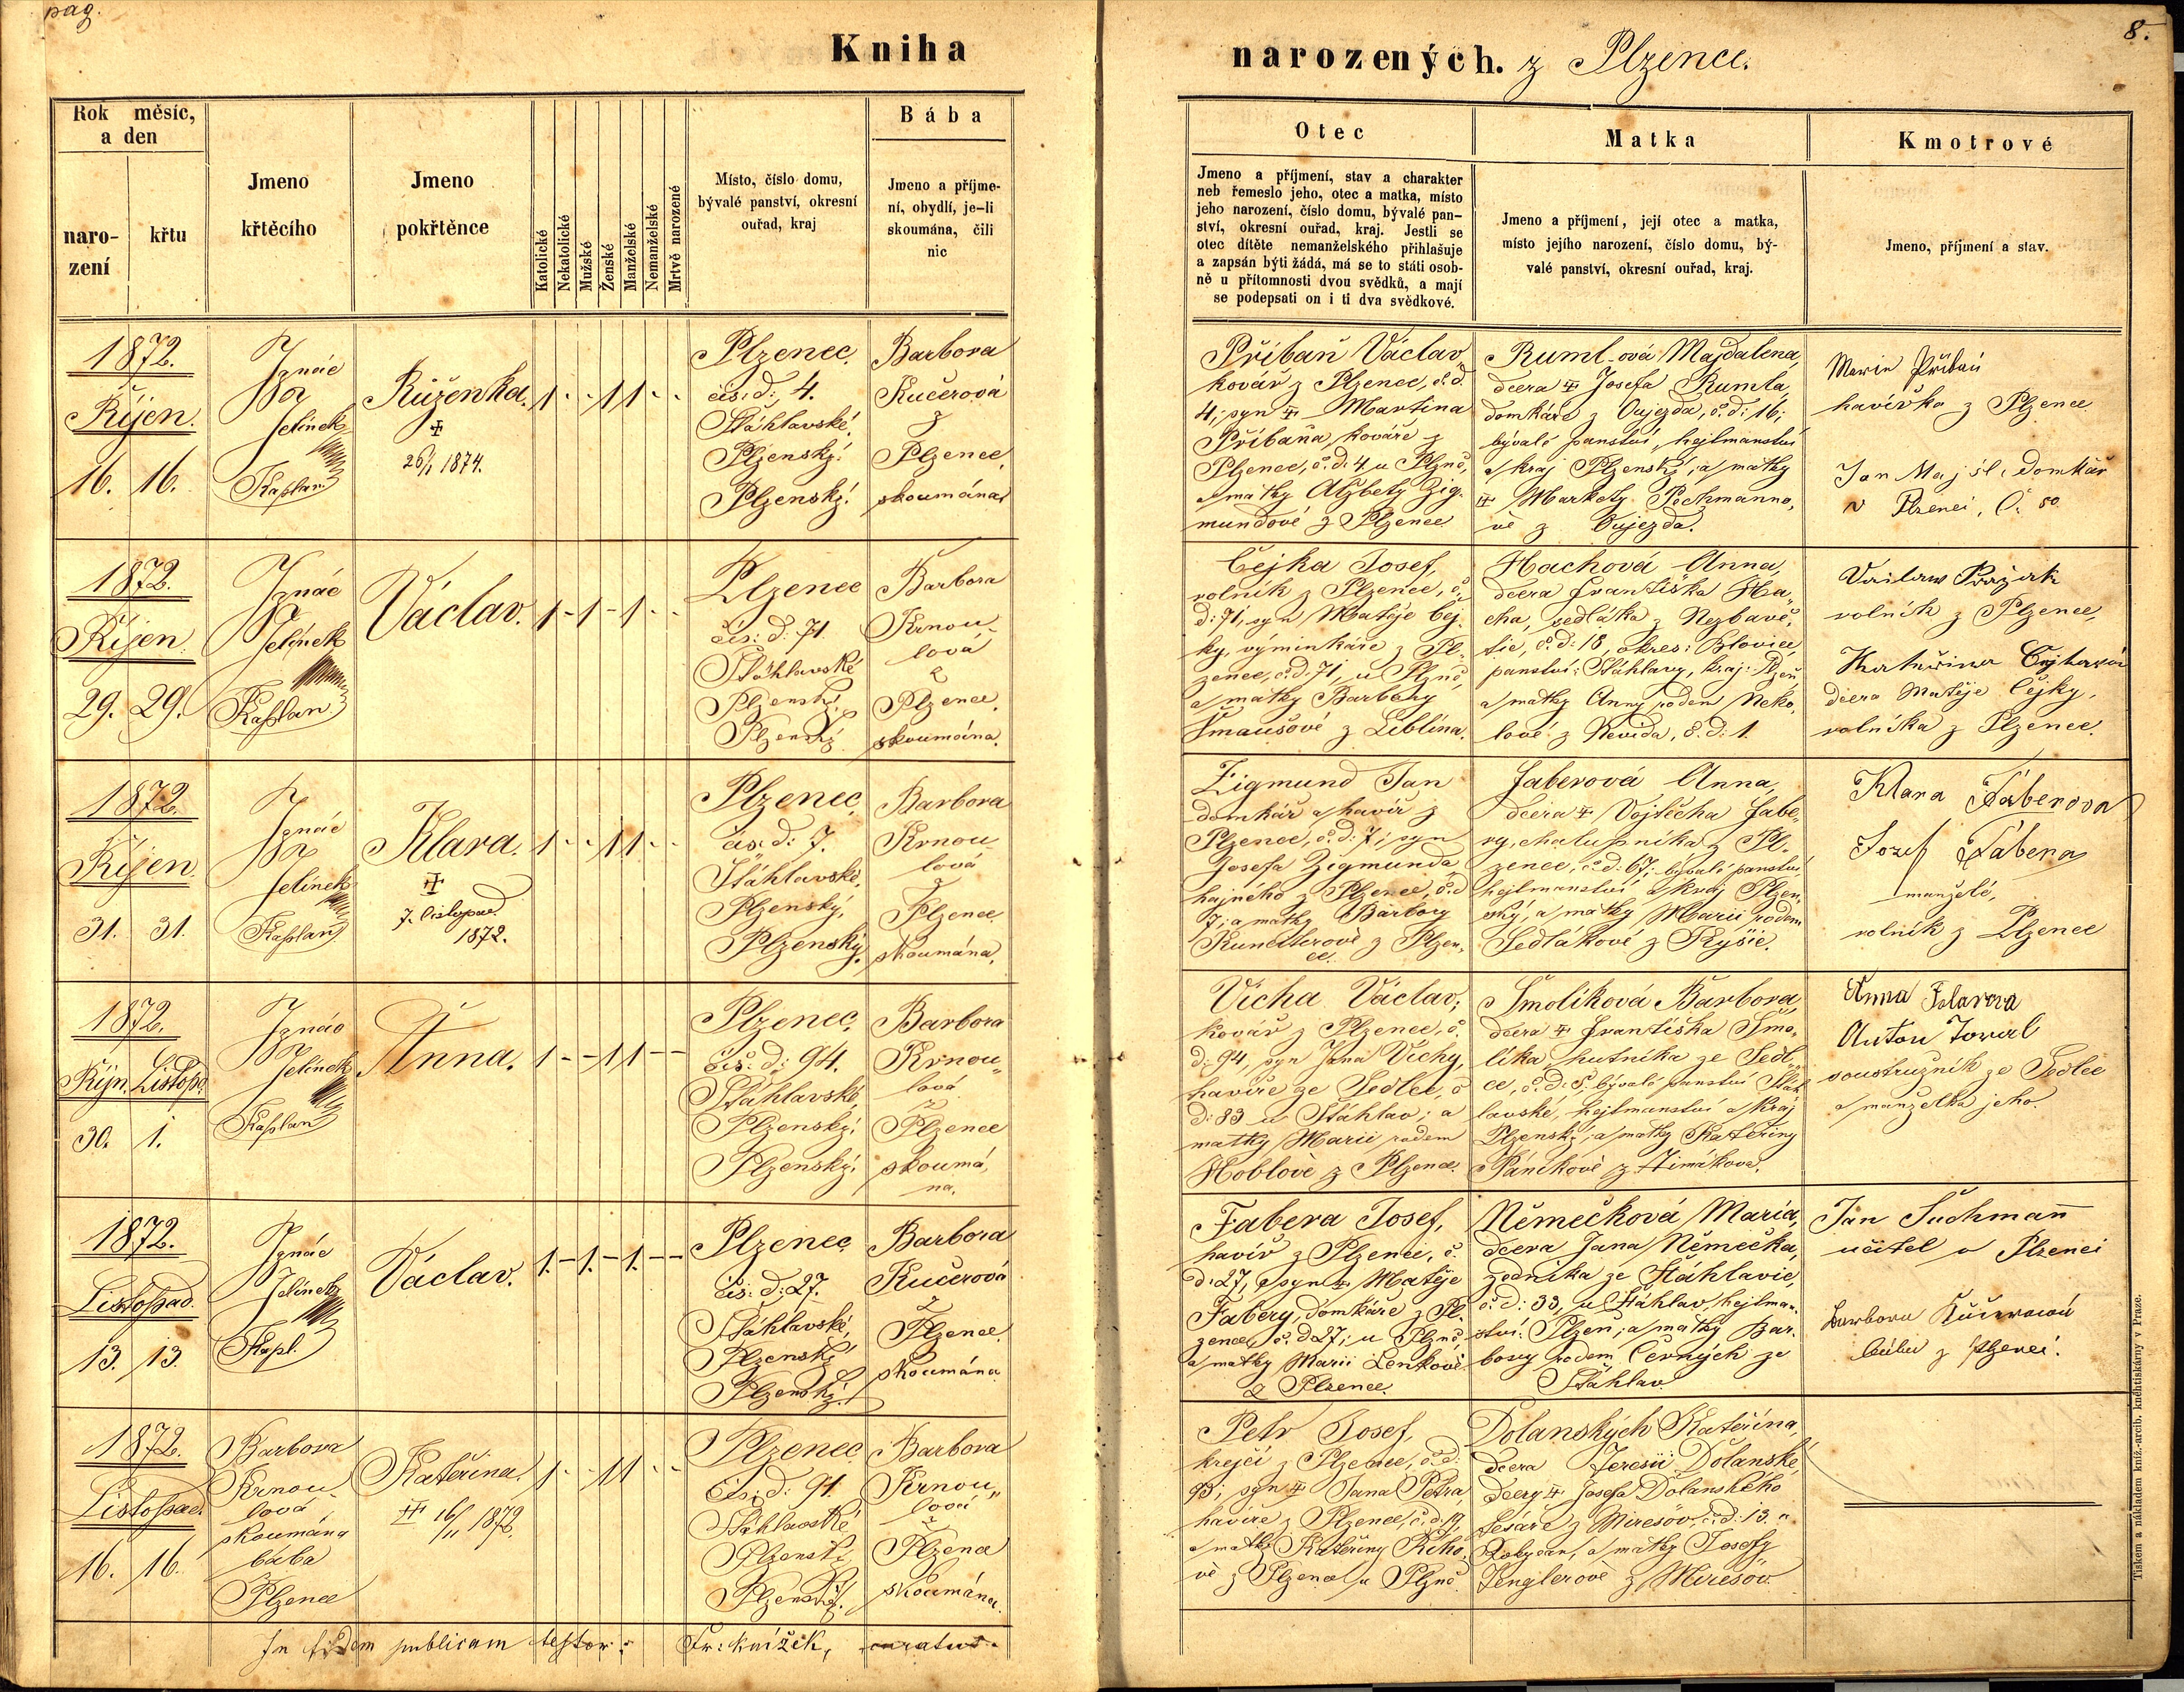 pag.
Kniha
Rok měsíc,
a den
naro-
zení
křtu
Jmeno
křtěcího
Jmeno
pokřtěnce
Katolické
Nekatolické
Mužské
Ženské
Manželské
Nemanželské
Mrtvě narozené
Místo, číslo domu,
bývalé panství, okresní
ouřad, kraj
Bába
Jmeno a příjme-
ní, obydlí, je-li
skoumána, čili
nic
1872.
Říjen.
16. 16.
Ignác
Jelínek
Kaplan
Růženka.
26/1 1874.
1 - - 1 1 - -
Plzenec.
čís: d: 4.
Šťáhlavské.
Plzenský.
Plzenský.
Barbora
Kučerová
z
Plzence,
skoumána.
1872.
Říjen.
29. 29.
Ignác
Jelínek
Kaplan.
Václav.
1 - 1 - 1 - -
Plzenec
čís: d: 71.
Šťáhlavské
Plzenský.
Plzenský.
Barbora
Krnou-
lová
z
Plzence,
skoumána.
1872.
Říjen.
31. 31.
Ignác
Jelínek
Kaplan
Klara.
7. listopad.
1872.
1 - - 1 1 - -
Plzenec
čís: d: 7.
Šťáhlavské,
Plzenský,
Plzenský.
Barbora
Krnou
lová
z
Plzence
skoumána.
1872.
Říjn. Listop.
30. 1.
Ignác
Jelínek
Kaplan
Anna.
1 - - 1 1 - -
Plzenec.
čís: d: 94.
Šťáhlavské
Plzenský.
Plzenský.
Barbora
Krnou„
lová
z
Plzence
skoumá,
na.
1872.
Listopad.
13. 13.
Ignác
Jelínek
Kapl.
Václav.
1. - 1. - 1. - -
Plzenec
čís: d: 27.
Šťáhlavské,
Plzenský
Plzenský.
Barbora
Kučerová
z
Plzence.
skoumána
1872.
Listopad.
16. 16.
Barbora
Krnou-
lová,
skoumána
bába
Plzence
Kateřina.
16/11 1872.
1 - - 1 1 - -
Plzenec
čís: d: 91.
Šťáhlavské
Plzenský
Plzenský.
Barbora
Krnou„
lová
z
Plzence
skoumána.
In fidem publicam testor: Fr: Knížek, curatus.
8.
narozených. z Plzence.
Otec
Jmeno a příjmení, stav a charakter
neb řemeslo jeho, otec a matka, místo
jeho narození, číslo domu, bývalé pan-
ství, okresní ouřad, kraj. Jestli se
otec dítěte nemanželského přihlašuje
a zapsán býti žádá, má se to státi osob-
ně u přítomnosti dvou svědků, a mají
se podepsati on i ti dva svědkové.
Matka
Jmeno a příjmení, její otec a matka,
místo jejího narození, číslo domu, bý-
valé panství, okresní ouřad, kraj.
Kmotrové
Jmeno, příjmení a stav.
Přibaň Václav
kovář z Plzence, č. d.
4; syn Martina
Přibaňa kováře z
Plzence, č. d. 4 u Plzně,
a matky Alžběty Zig-
mundové z Plzence
Ruml-ová Majdalena,
dcera Josefa Rumla,
domkáře z Oujezda, č. d: 16;
bývalé panství, hejtmanství
a kraj Plzenský, a matky
Markety Pechmanno,
vé z Oujezda.
Marie Přibáň
havířka z Plzence
Jan Maj domkář
v Plzenci, Č. 50
Čejka Josef,
rolník z Plzence, č.
d: 71, syn Matěje Čej-
ky, výminkáře z Pl-
zence, č. d. 71, u Plzně,
a matky Barbory
Šmausové z Liblína.
Hachová Anna,
dcera Františka Ha„
cha, sedláka z Nezbavě,
tic, č. d: 18, okres: Blovice,
panství: Šťáhlavy, kraj: Plzeň
a matky Anny rodem Neko,
lové z Nevida, č. d: 1.
rolník z Plzence,
Kateřina Čejková
dcera Matěje Čejky,
rolníka z Plzence.
Zigmund Jan
domkář a havíř z
Plzence, č. d: 7; syn
Josefa Zigmunda
hajného z Plzence, č. d
7; a matky Barbory
z Plzen-
ce.
Faberová Anna,
dcera Vojtěcha Fabe-
ry, chalupníka z Pl-
zence, č. d: 67; bývalé panství
hejtmanství a kraj Plzen-
ský, a matky Marii rodem
Sedlákové z Kyšic.
Klara Fáberova
Jozef Fábera
manželé,
rolník z Plzence
Vícha Václav,
kovář z Plzence, č.
d: 94, syn Jana Víchy,
havíře ze Sedlce, č
d: 83 u Šťáhlav; a
matky Marii rodem
Hoblové z Plzence.
Smolíková Barbora,
dcera Františka Smo-
líka, hutníka ze Sedl-
ce, č. d: 5. bývalé panství Šťáh
lavské, hejtmanství a kraj
Plzenský, a matky Kateřiny
Pánikové z Timákova.
Anna
Anton
soustružník ze Sedlce
a manželka jeho.
Fabera Josef,
havíř z Plzence, č.
d: 27, syn Matěje
Fabery, domkáře z Pl-
zence, č. d 27; u Plzně,
a matky Marii Lenkové
z Plzence.
Němečková Maria,
dcera Jana Němečka,
zedníka ze Šťáhlavic,
č. d: 33, u Šťáhlav, hejtman-
ství: Plzeň; a matky Bar-
bory rodem Černých ze
Šťáhlav.
Jan Suchmann
učitel v Plzenci
Barbora Kučerová
bába z Plzenci.
Petr Josef,
krejčí z Plzence, č. d:
93; syn Jana Petra,
havíře z Plzence, č. d. 19,
a matky Kateřiny
vé z Plzence u Plzně.
Dolanských Kateřina,
dcera Teresii Dolanské,
dcery Josefa Dolanského
tesaře z Mirešov, č. d: 13. u
Rokycan, a matky Josefy
Tenglerové z Mirešov.
Tiskem a nákladem kníž.-arcib. knihtiskárny v Praze.